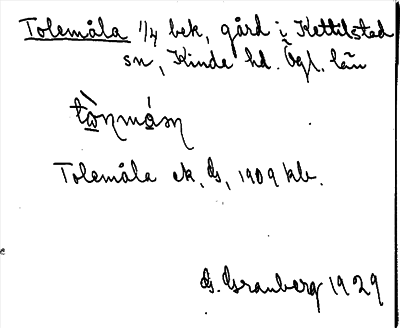 Tolemåla 1/4 bek, gård i Kettilstad
sn, Kinde hd. Ögl. län
Tolemåla ek, ds, 1909 kb.
G. Granberg 1929